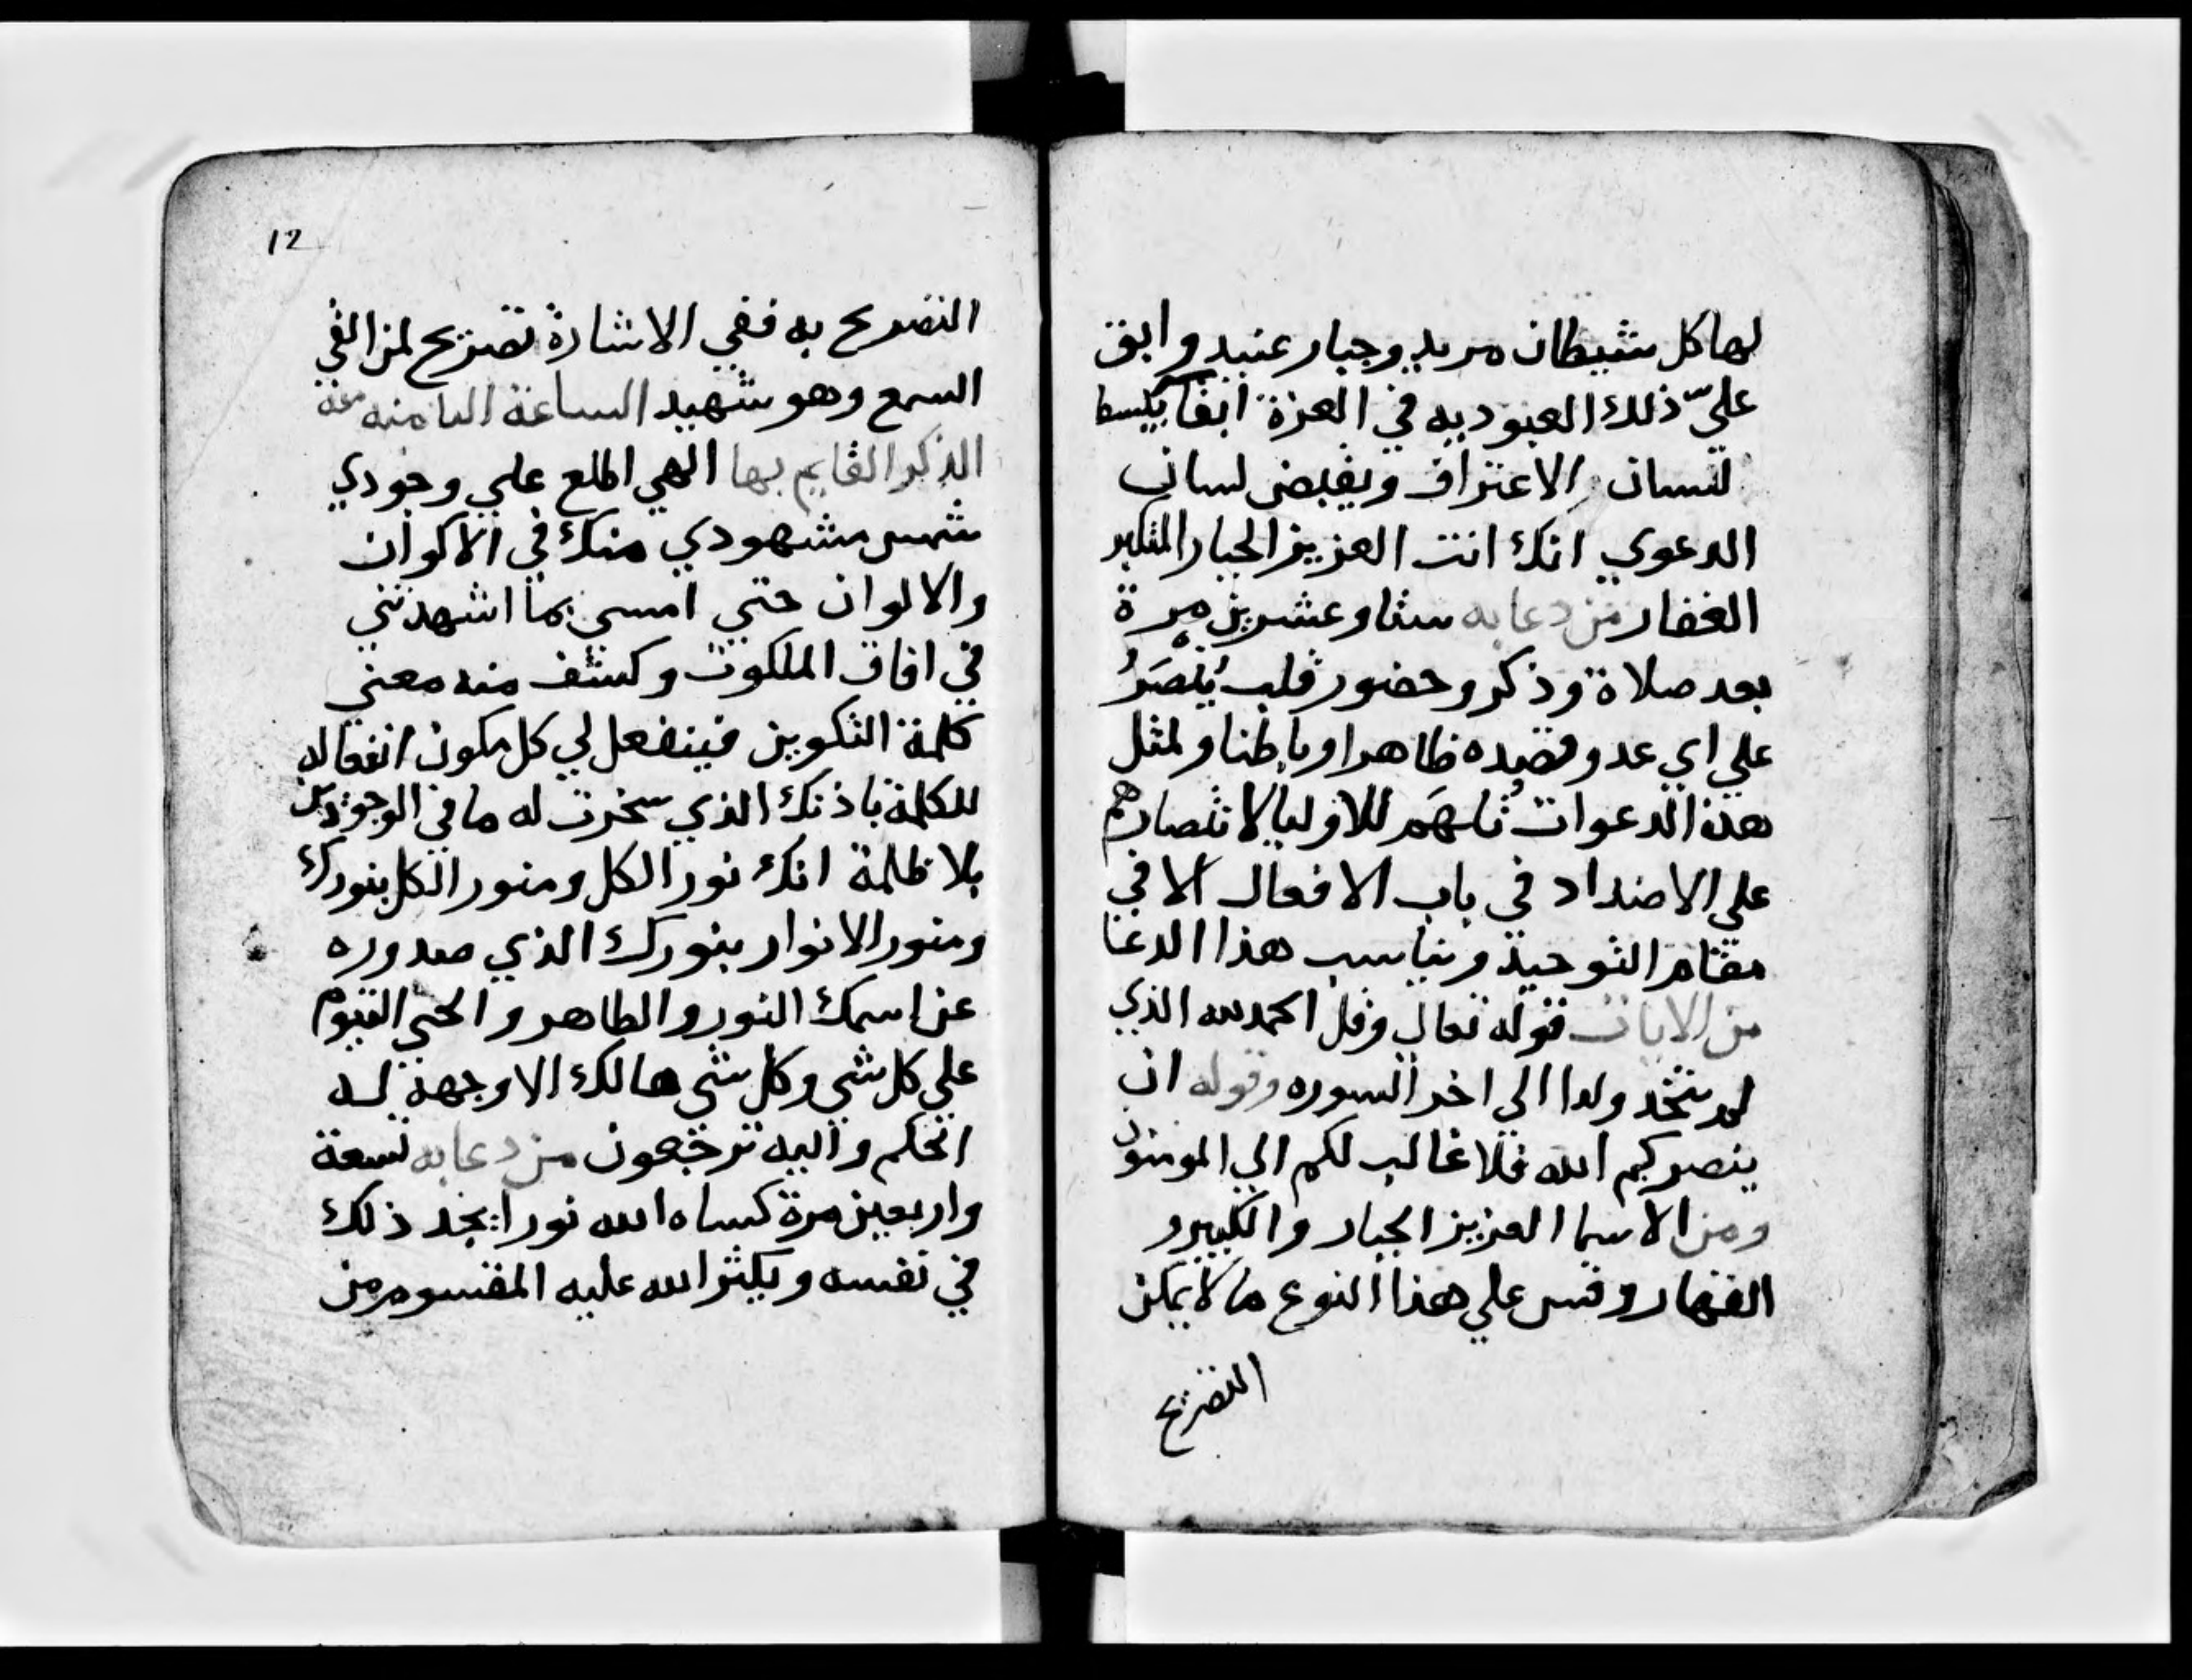 لها كل شيطان مريد وجبار عنيد وابق
علي ذلك العبوديه في العزة ابقا يبسط
لسان الاعتراف ويقبض لسان
الدعوي انك انت العزيز الجبار المتكبر
الغفار من دعا به ستا وعشرين مرة
بعد صلاة وذكر وحضور قلب يُنْصَرُ
علي اي عدو قصده ظاهرا وباطنا ولمثل
هذه الدعوات تُلهَم للاوليا لانتصارهم
علي الاضداد في باب الافعال لا في
مقام التوحيد ويناسب هذا الدعا
من الايات قوله تعالي وقل الحمد لله الذي
لم يتخد ولدا الي اخر السوره وقوله ان
ينصركم الله فلا غالب لكم الي المومنون
ومن الاسما العزيز الجبار والكبير و
القهار وقس علي هذا النوع ما لا يمكن
التصريح
12
التصريح به ففي الاشارة تصريح لمن القي
السمع وهو شهيد الساعة الثامنه منه
الذكر القايم بها الهي اطلع علي وجودي
شمس شهودي منك في الاكوان
والالوان حتي امسي بما اشهدتني
في افاق الملكوت وكشف منه معني
كلمة التكوين فينفعل لي كل مكون انفعاله
للكلمة باذنك الذي سخرت له ما في الوجودين
بلا ظلمة انك نور الكل ومنور الكل بنورك
ومنور الانوار بنورك الذي صدوره
عن اسمك النور والظاهر والحي القيوم
علي كل شي وكل شي هالك الا وجهه له
الحكم واليه ترجعون من دعا به تسعة
واربعين مرة كساه الله نورا يجد ذلك
في نفسه ويكثر الله عليه المقسوم من